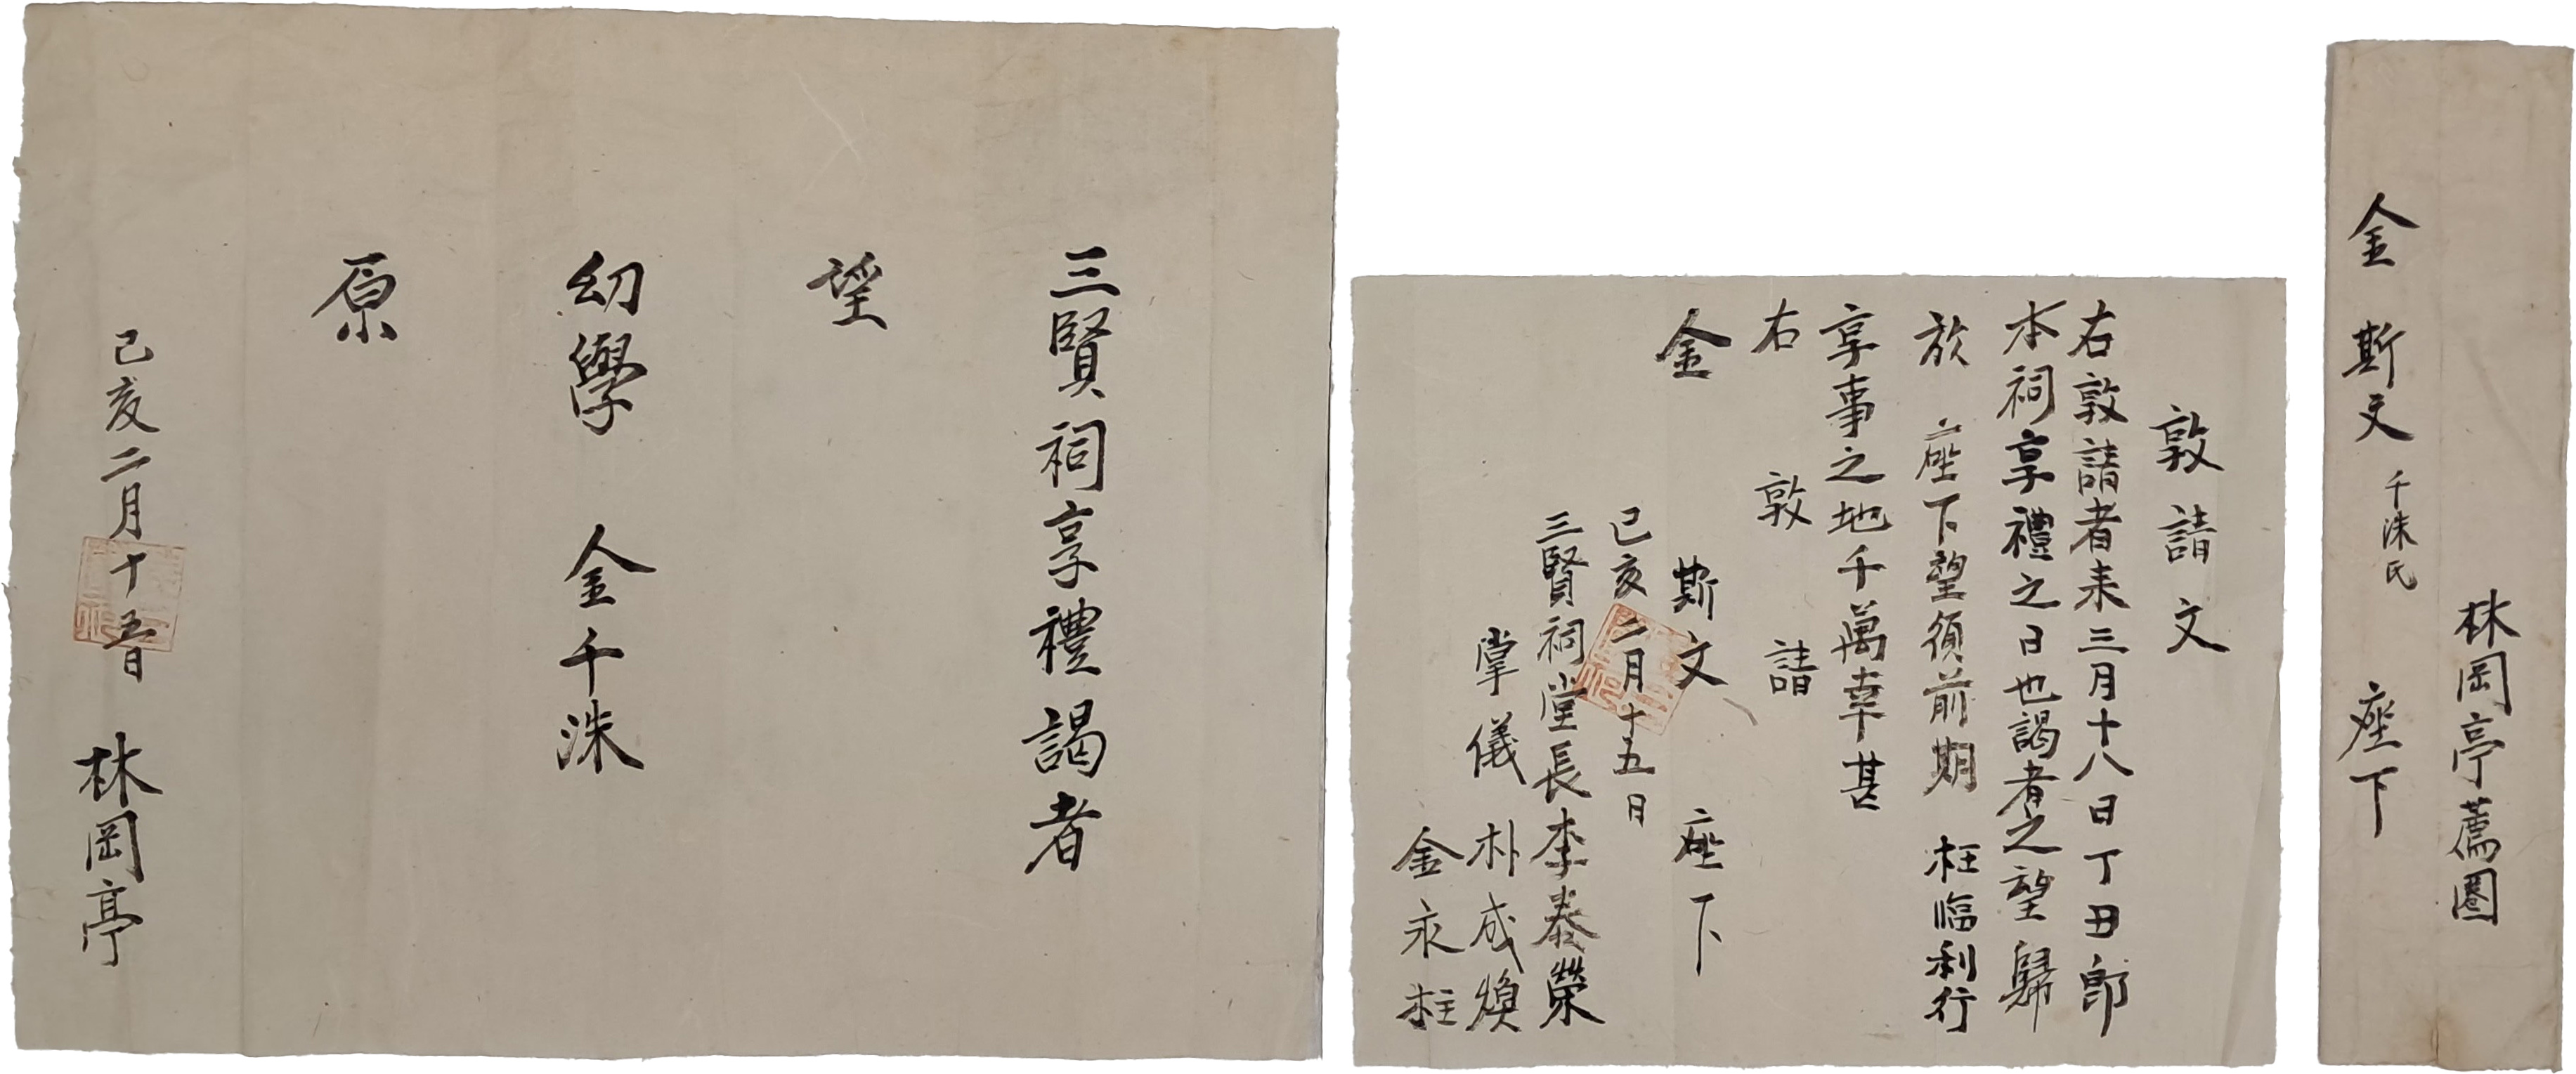 林岡亭薦圈
金斯文千洙氏 座下
敦請文
右敦請者来三月十八日丁丑郎
本祠享禮之日也謁者之望歸
於 座下望須前期 枉臨利行
享事之地千萬幸甚
右 敦 請
金 斯文 座下
己亥二月十五日
三賢祠堂長李泰榮
掌儀 朴成煥
金永柱
三賢祠享禮謁者
望
幼學 金千洙
原
己亥二月十五日 林岡亭